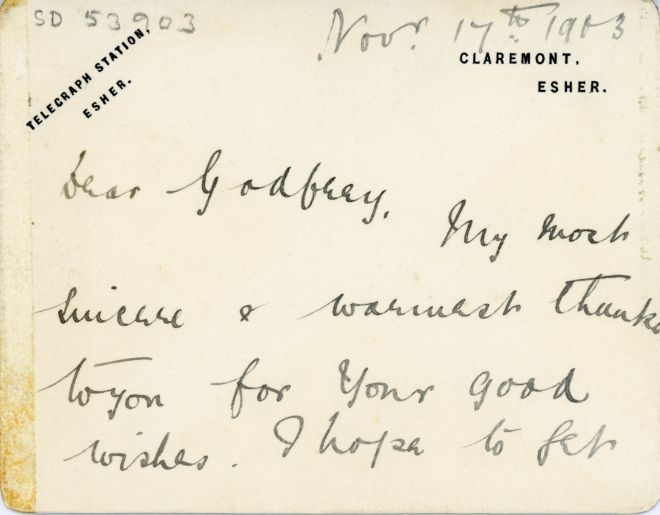 SD 53903
Novr. 17th 1903
TELEGRAPH STATION,
ESHER.
CLAREMONT,
ESHER.
Dear Godfrey,
My most
sincere & warmest thanks
to you for Your good
wishes. I hope to get